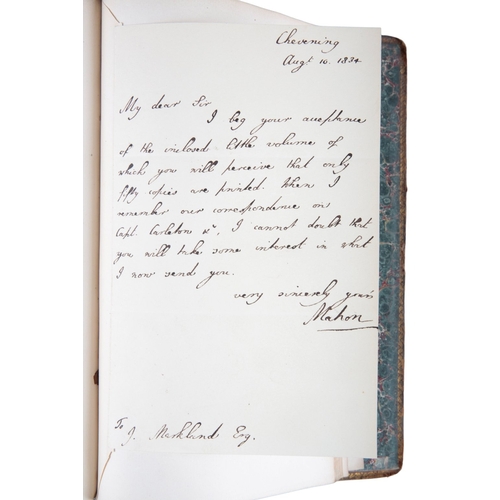 Chevening
Augt 10. 1834
My dear Sir
I beg your acceptance
of the inclosed little volume of
which you will perceive that only
fifty copies are printed. When I
remember our correspondence on
Capt. Carleton &c, I cannot doubt that
you will take some interest in what
I now send you.
very sincerely yours
Mahon
To
J. Markland Esq.